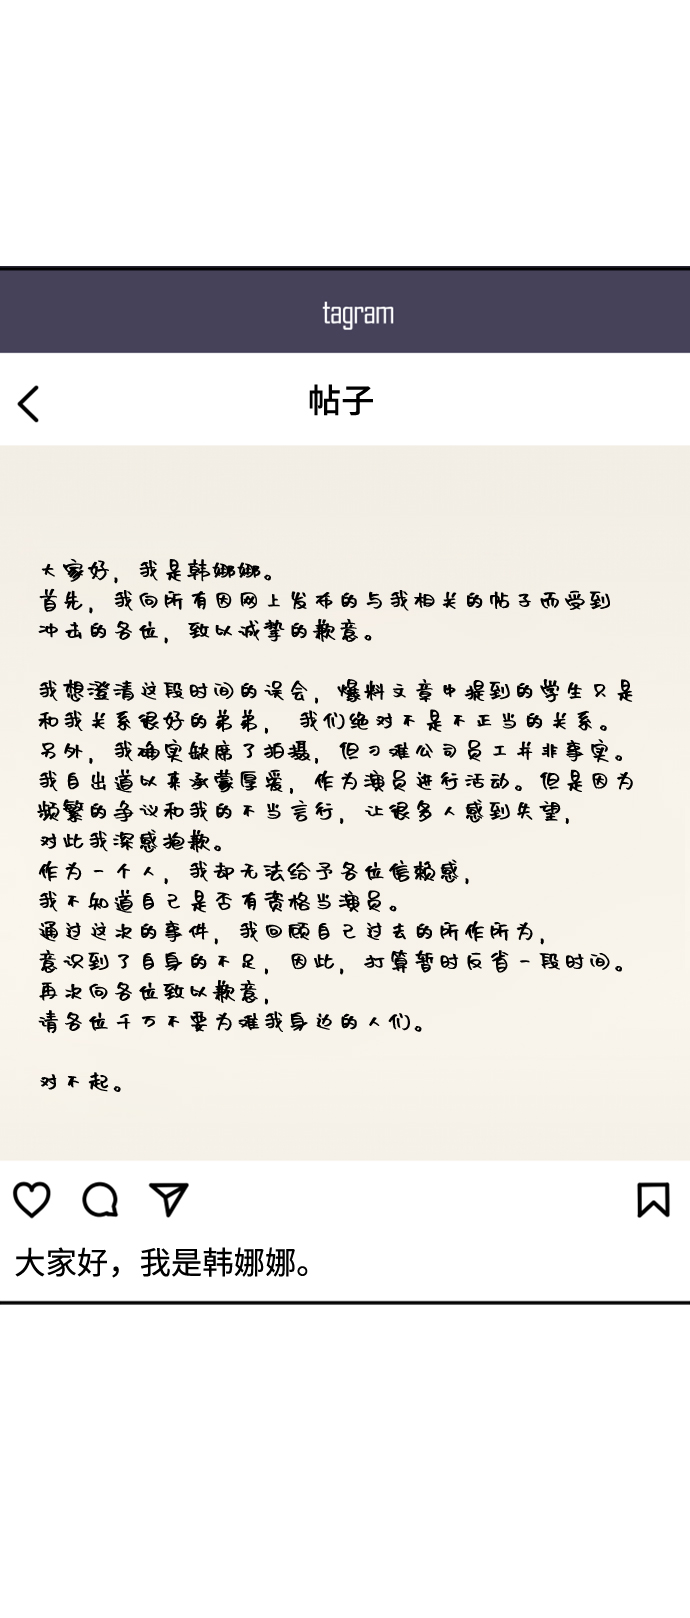 tagram
帖子
大家好，我是韩娜娜。
首先，我向所有因网上发布的与我相关的帖子而受到
冲击的各位，致以诚挚的歉意。
我想澄清这段时间的误会，爆料文章中提到的学生只是
和我关系很好的弟弟，我们绝对不是不正当的关系。
另外，我确实缺席了拍摄，但刁难公司员工并非事实。
我自出道以来承蒙厚爱，作为演员进行活动。但是因为
频繁的争议和我的不当言行，让很多人感到失望，
对此我深感抱歉。
作为一个人，我却无法给予各位信赖感，
我不知道自己是否有资格当演员。
通过这次的事件，我回顾自己过去的所作所为，
意识到了自身的不足，因此，打算暂时反省一段时间。
再次向各位致以歉意，
请各位千万不要为难我身边的人们。
对不起。
大家好，我是韩娜娜。